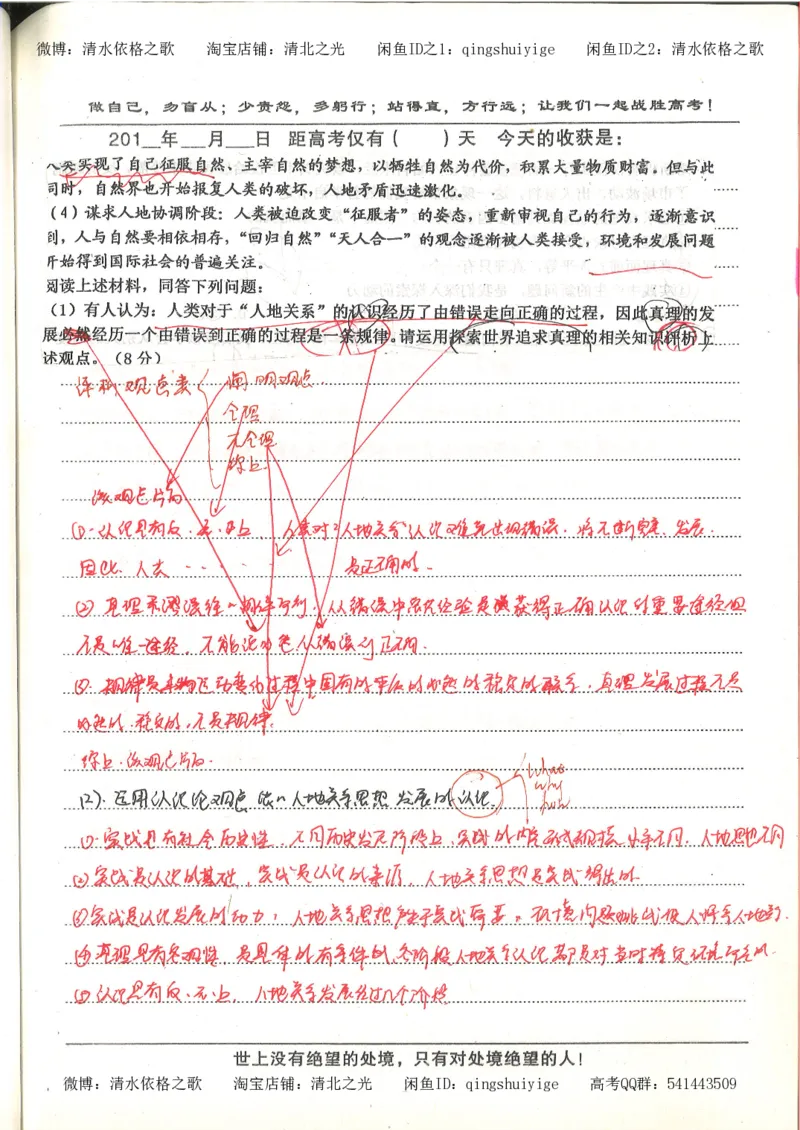 微博：清水依格之歌 淘宝店铺：清北之光 闲鱼ID之1：qingshuiyige 闲鱼ID之2：清水依格之歌
做自己，勿盲从；少责怨，多躬行；站得直，方行远；让我们一起战胜高考！
201__年___月___日 距高考仅有（ ）天 今天的收获是：
实现了自己征服自然、主宰自然的梦想，以牺牲自然为代价，积累大量物质财富。但与此
同时，自然界也开始报复人类的破坏，人地矛盾迅速激化。
（4）谋求人地协调阶段：人类被迫改变“征服者”的姿态，重新审视自己的行为，逐渐意识
到，人与自然要相依相存，“回归自然”“天人合一”的观念逐渐被人类接受，环境和发展问题
开始得到国际社会的普遍关注。
阅读上述材料，同答下列问题：
（1）有人认为：人类对于“人地关系”的认识经历了由错误走向正确的过程，因此真理的发
展必然经历一个由错误到正确的过程是一条规律。请运用探索世界追求真理的相关知识评析上
述观点。（8 分）
评析观点类 阐明观点
合理
不合理
综上
该观点片面
①认识具有反、无、上，人类对人地关系认识难免出现错误，将不断 发展.
因此.人去······是正确的.
②真理 从错误中 经验是获得正确认识的重要途径但
不是唯一途径，不能 从错误到正确.
③.规律是事物运动变化过程中固有的本质的必然的稳定的联系，真理发展过程不是
必然的.稳定的，不是规律.
综上.该观点片面.
（2）.运用认识论观点 人地关系思想发展的认识. what
why
how
①.实践具有社会历史性，不同历史发展阶段上，实践的内容形式规模水平不同，人地思想不同
②实践是认识的基础，实践是认识的来源，人地关系思想是实践得出的
③实践是认识发展的动力，人地关系思想产生于实践需要。环境问题 使人 人地
④真理具有客观性，是具体的有条件的，各阶段人地关系认识都是对当时
⑤认识具有反、无、上，人地关系发展经过几个阶段
世上没有绝望的处境，只有对处境绝望的人！
微博：清水依格之歌 淘宝店铺：清北之光 闲鱼ID：qingshuiyige 高考QQ群：541443509